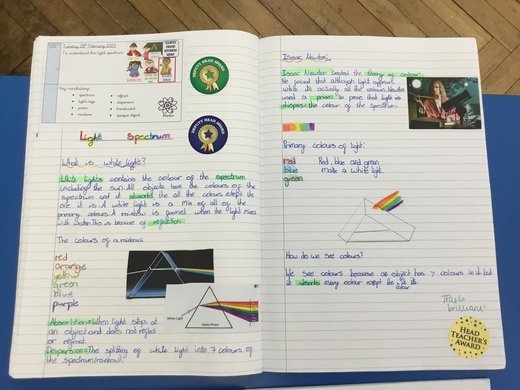 L.O: Tuesday 28th February 2023
To understand the light spectrum.
Key vocabulary:
spectrum
light rays
prism
rainbow
refract
dispersion
translucent
opaque object
Physics
DEPUTY HEAD AWARD
DEPUTY HEAD AWARD
Light Spectrum
What is white light?
White lights contains the colour of the spectrum
including the sun. All objects have the colours of the
spectrum and it absorbs the all the colours except the
one it is. A white light is a mix of all of the
primary colours. A rainbow is formed when the light mixes
with water. This is because of refraction.
The colours of a rainbow:
red
orange
yellow
green
blue
purple
White Light
Glass Prism
Absorbtion:= When light stops at
an object and does not reflect
or refract.
Dispersion:= The splitting of white light into 7 colours of
the spectrum (rainbow).
Isaac Newton:
Isaac Newton created the theory of colour.
He found that although light appears
white its actually all the colours. Newton
used a prism to prove that light is
disperse the colour of the spectrum.
Primary colours of light:
red Red, blue and green
blue make a white light.
green
How do we see colours?
We see colours because an object has 7 colours in it but
it absorbs every colour except the it its
colour
This is
brilliant!
HEAD
TEACHER'S
AWARD